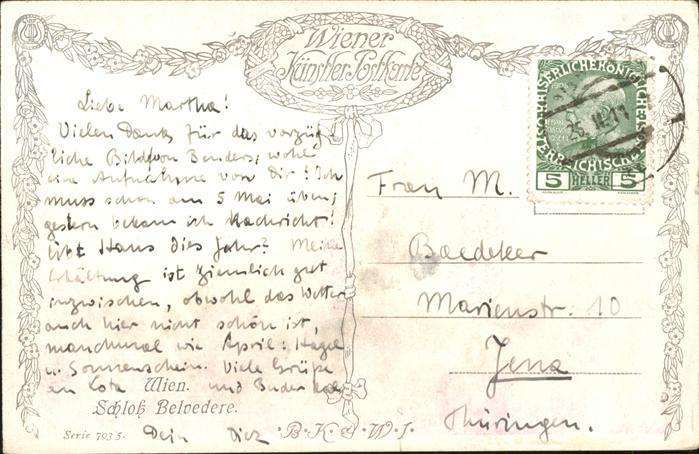 Wiener
Künstler-Postkarte
Liebe Martha!
Vielen Dank für das vorzüg-
liche Bild von Benders, wohl
eine Aufnahme von Dir! Ich
muss schon am 5 Mai üben,
gestern bekam ich Nachricht!
Hans dies Jahr? Meine
Erkältung ist ziemlich gut
inzwischen, obwohl das Wetter
auch hier nicht schön ist,
manchmal wie April: Hagel
u. Sonnenschein. Viele Grüße
an Lota und
Wien.
Schloß Belvedere.
Serie 793 5.
Dein
B.K.W.I.
5 HELLER 5
Frau M.
Baedeker
Marienstr. 10
Jena
Thüringen.